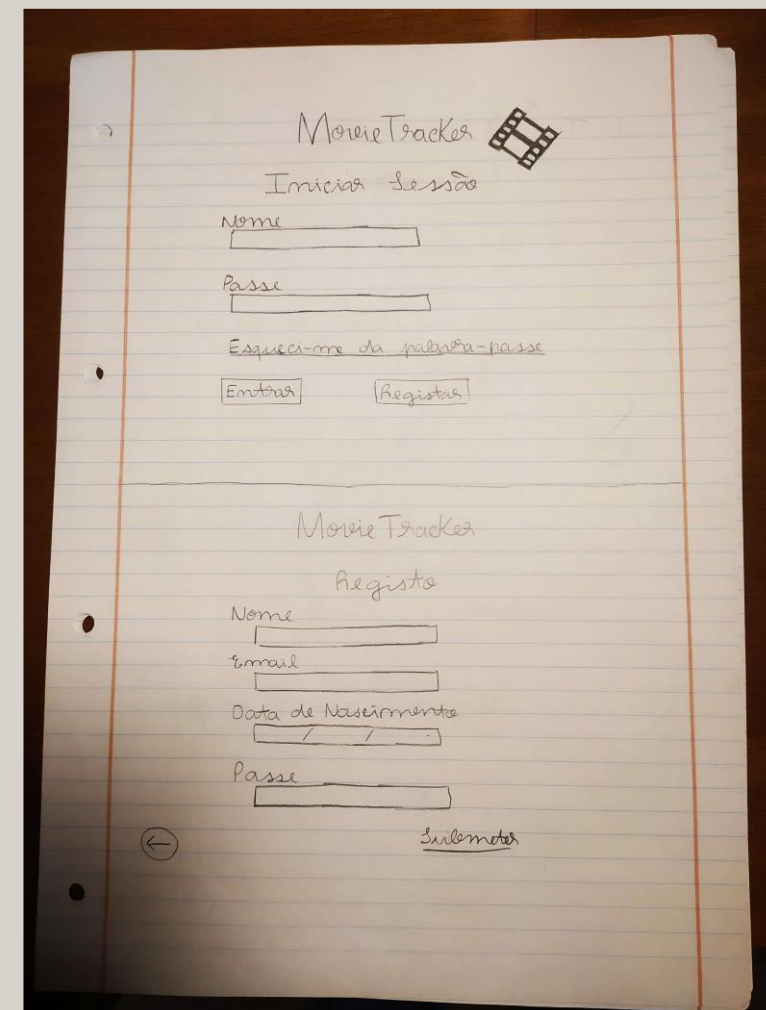 MovieTracker
Iniciar Sessão
Nome
Passe
Esqueci-me da palavra-passe
Entrar Registar
MovieTracker
Registo
Nome
Email
Data de Nascimento
/ /
Passe
← Submeter